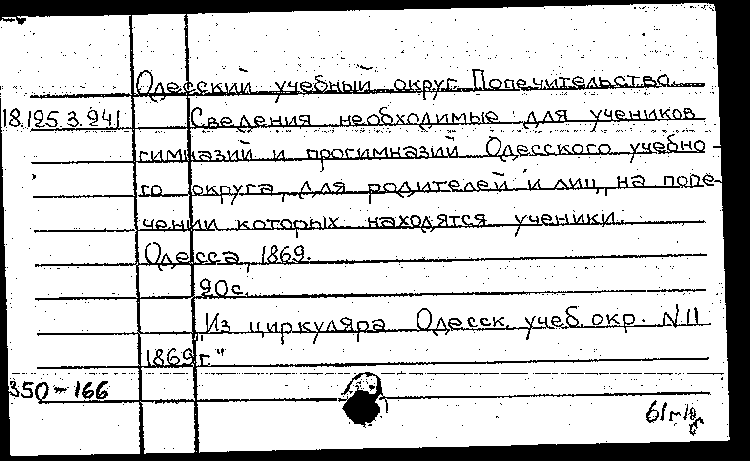 Одесский учебный округ. Попечительство.
18.125.3.241 Сведения необходимые для учеников
гимназий и прогимназий Одесского учебно-
го округа, для родителей и лиц, на попе-
чении которых находятся ученики.
Одесса, 1869.
20с.
"Из циркуляра Одесск. учеб. окр. N 11
1869г."
350-166